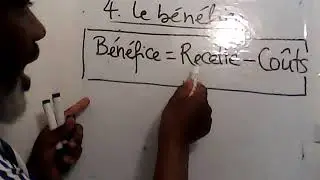 4. le bénéfice
Bénéfice = Recette - Coûts